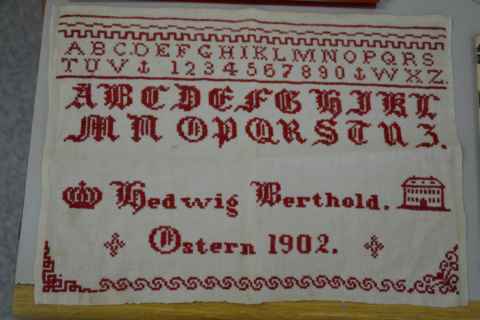 ABCDEFGHIKLMNOPQRS
TUV 1234567890 WXZ
ABCDEFGHIKL
MNOPQRSTUZ.
Hedwig Berthold.
Ostern 1902.